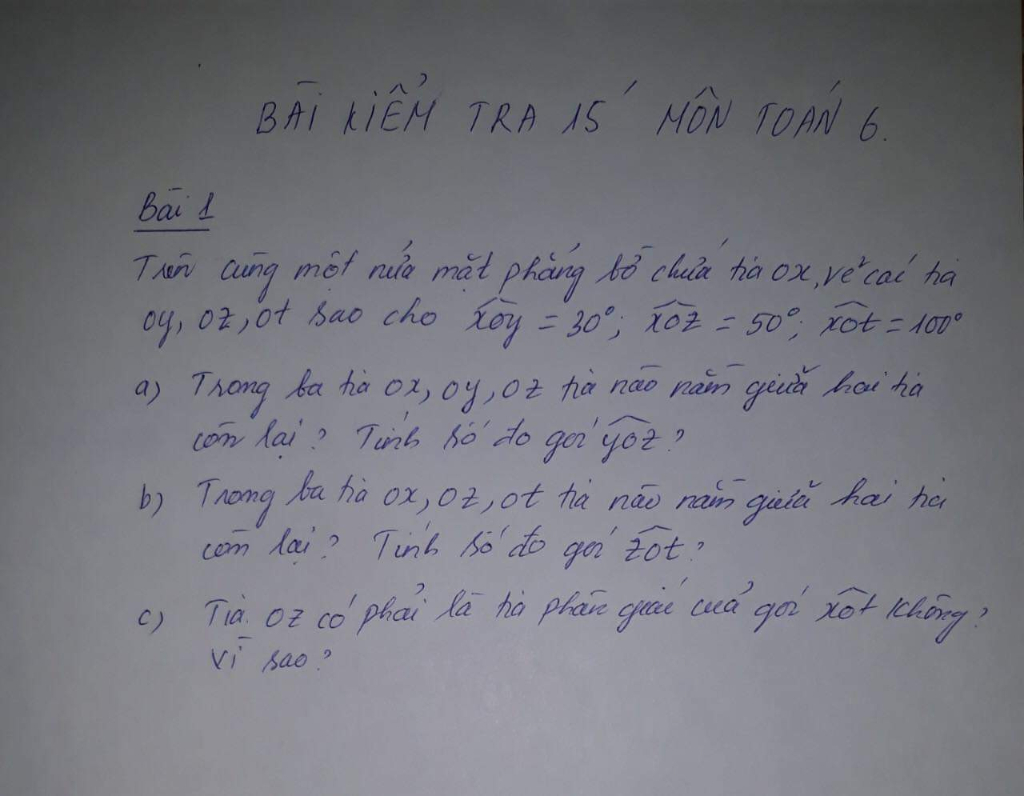 BÀI KIỂM TRA 15' MÔN TOÁN 6.
Bài 1
Trên cùng một nửa mặt phẳng bờ chứa tia ox, vẽ các tia
oy, oz, ot sao cho xÔy = 30°; xÔz = 50°; xÔt = 100°
a) Trong ba tia ox, oy, oz tia nào nằm giữa hai tia
còn lại? Tính số đo góc yÔz?
b) Trong ba tia ox, oz, ot tia nào nằm giữa hai tia
còn lại? Tính số đo góc zÔt?
c) Tia oz có phải là tia phân giác của góc xÔt không?
Vì sao?